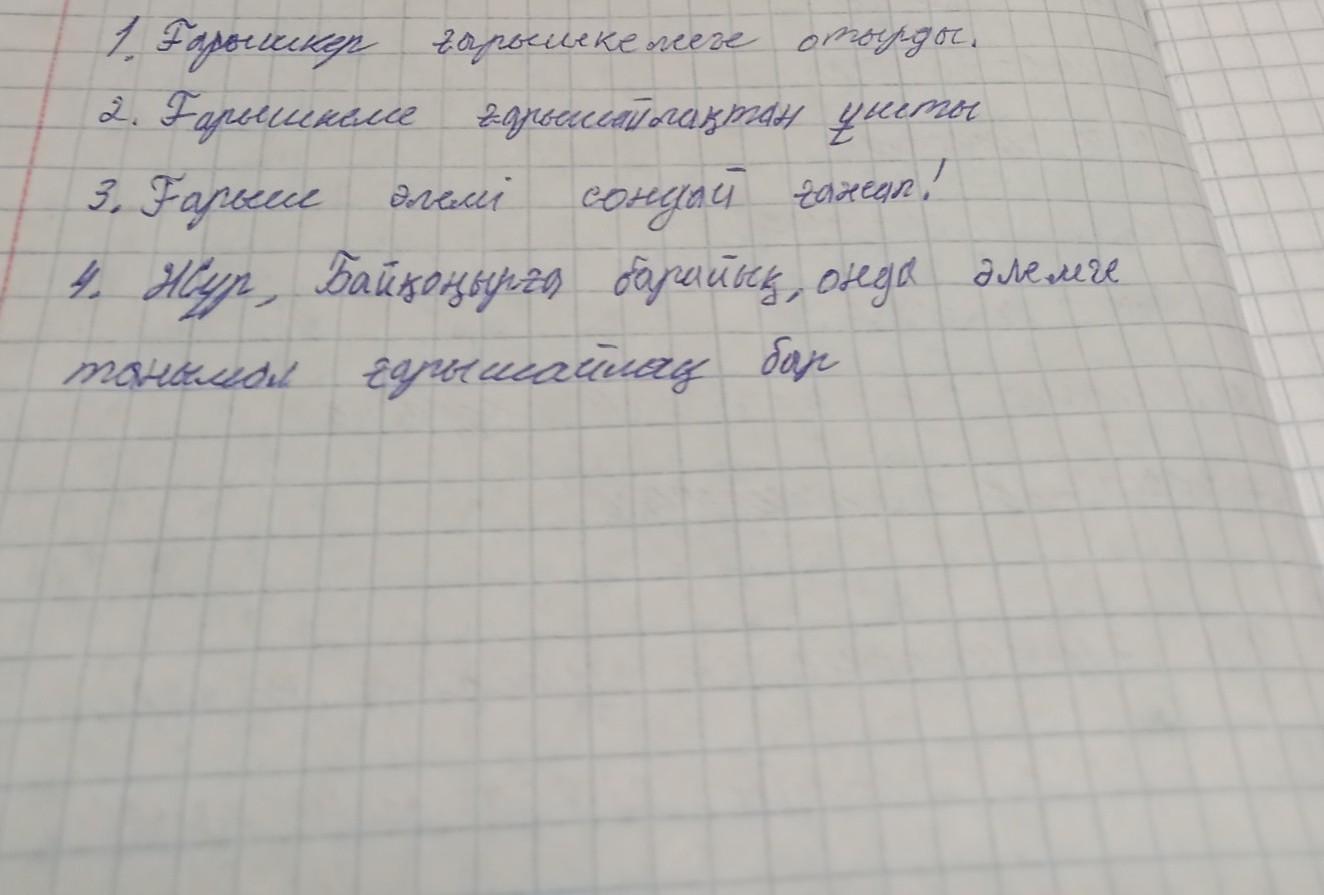 1. Ғарышкер ғарышкемеге отырды.
2. Ғарышкеме ғарышайлақтан ұшты
3. Ғарыш әлемі сондай ғажап!
4. Жүр, Байқоңырға барайық, онда әлемге
танымал ғарышайлақ бар